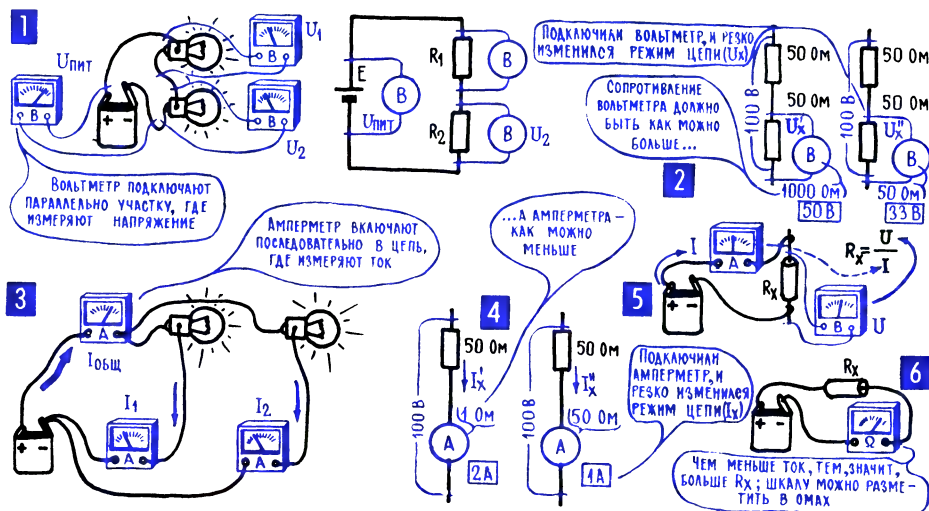 1
U1
В
Uпит
В
+ -
В
U2
Вольтметр подключают
параллельно участку, где
измеряют напряжение
E
В
Uпит
R1
В
R2
В
U2
Подключили вольтметр, и резко
изменился режим цепи (Ux)
Сопротивление
вольтметра должно
быть как можно
больше...
2
50 Ом
100 В
50 Ом
Ux'
В
1000 Ом
50 В
50 Ом
100 В
50 Ом
Ux"
В
50 Ом
33 В
3
Амперметр включают
последовательно в цепь,
где измеряют ток
А
Iобщ
I1
I2
+ -
А
А
4
...а амперметра –
как можно
меньше
50 Ом
Ix'
100 В
1 Ом
А
2 А
50 Ом
Ix"
100 В
50 Ом
А
1 А
Подключили
амперметр, и
резко изменился
режим цепи (Ix)
5
I
А
+ -
Rx
В
U
Rx = U
I
6
Rx
+ -
Ω
Чем меньше ток, тем, значит,
больше Rx; шкалу можно разме-
тить в омах